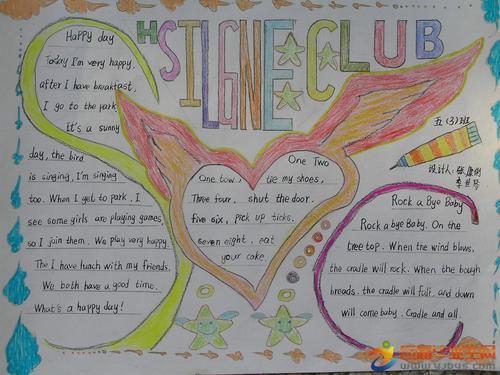 HSILGNE CLUB
Happy day
Today I'm very happy.
after I have breakfast,
I go to the park
It's a sunny
day, the bird
is singing, I'm singing
too. When I get to park, I
see some girls are playing games,
so I join them. We play very happy.
The I have lunch with my friends,
We both have a good time.
What's a happy day!
One Two
One tow, tie my shoes,
Three four, shut the door.
five six, pick up ticks.
seven eight, eat
your cake.
五(3)班
设计人:
Rock a Bye Baby
Rock a bye Baby. On the
tree top. When the wind blows,
the cradle will rock. When the bough
breads, the cradle will fall, and down
will come baby. Cradle and all.
www.yjbys.com